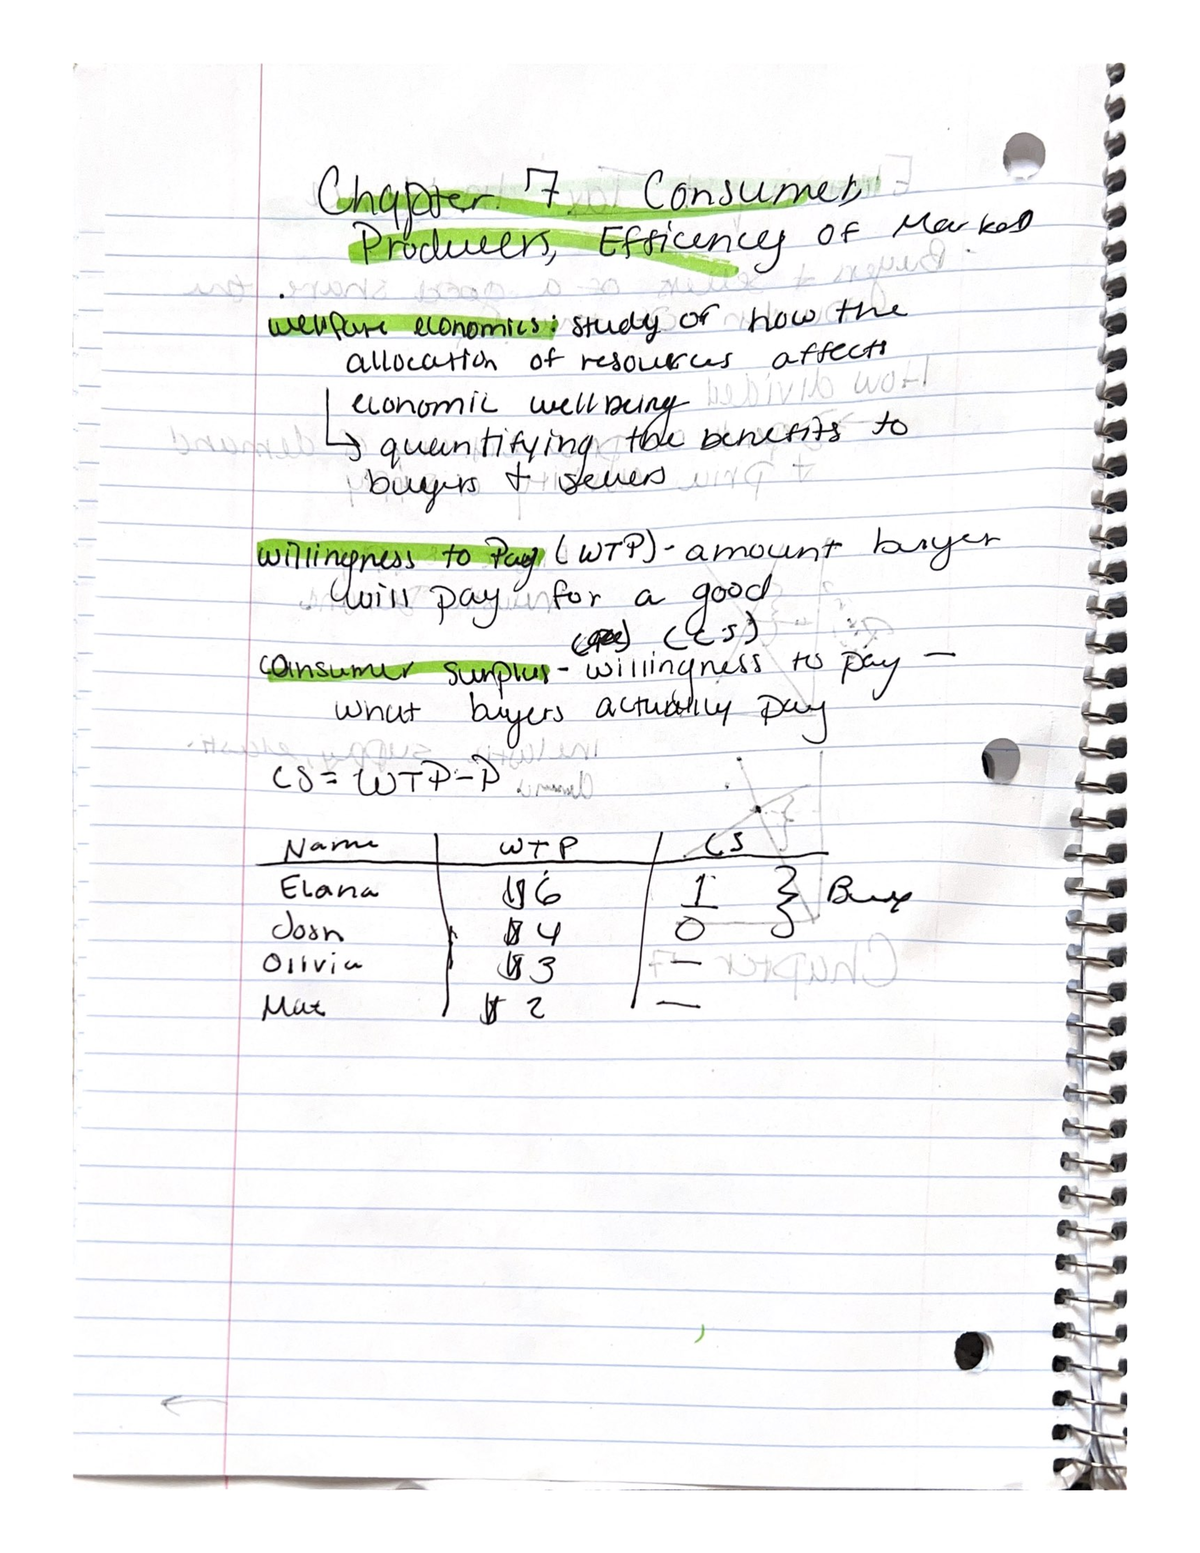 Chapter 7 Consumer,
Producers, Efficency of Market
welfare economics: study of how the
allocation of resources affects
economic wellbeing
↳ quantifying the benefits to
buyers + sellers
willingness to Pay (WTP) - amount buyer
will pay for a good
(CS)
consumer surplus - willingness to pay -
what buyers actually pay
CS = WTP - P
Name | WTP | CS
Elana $6 1 } Buy
Josh $4 0
Olivia $3 —
Mat $2 —